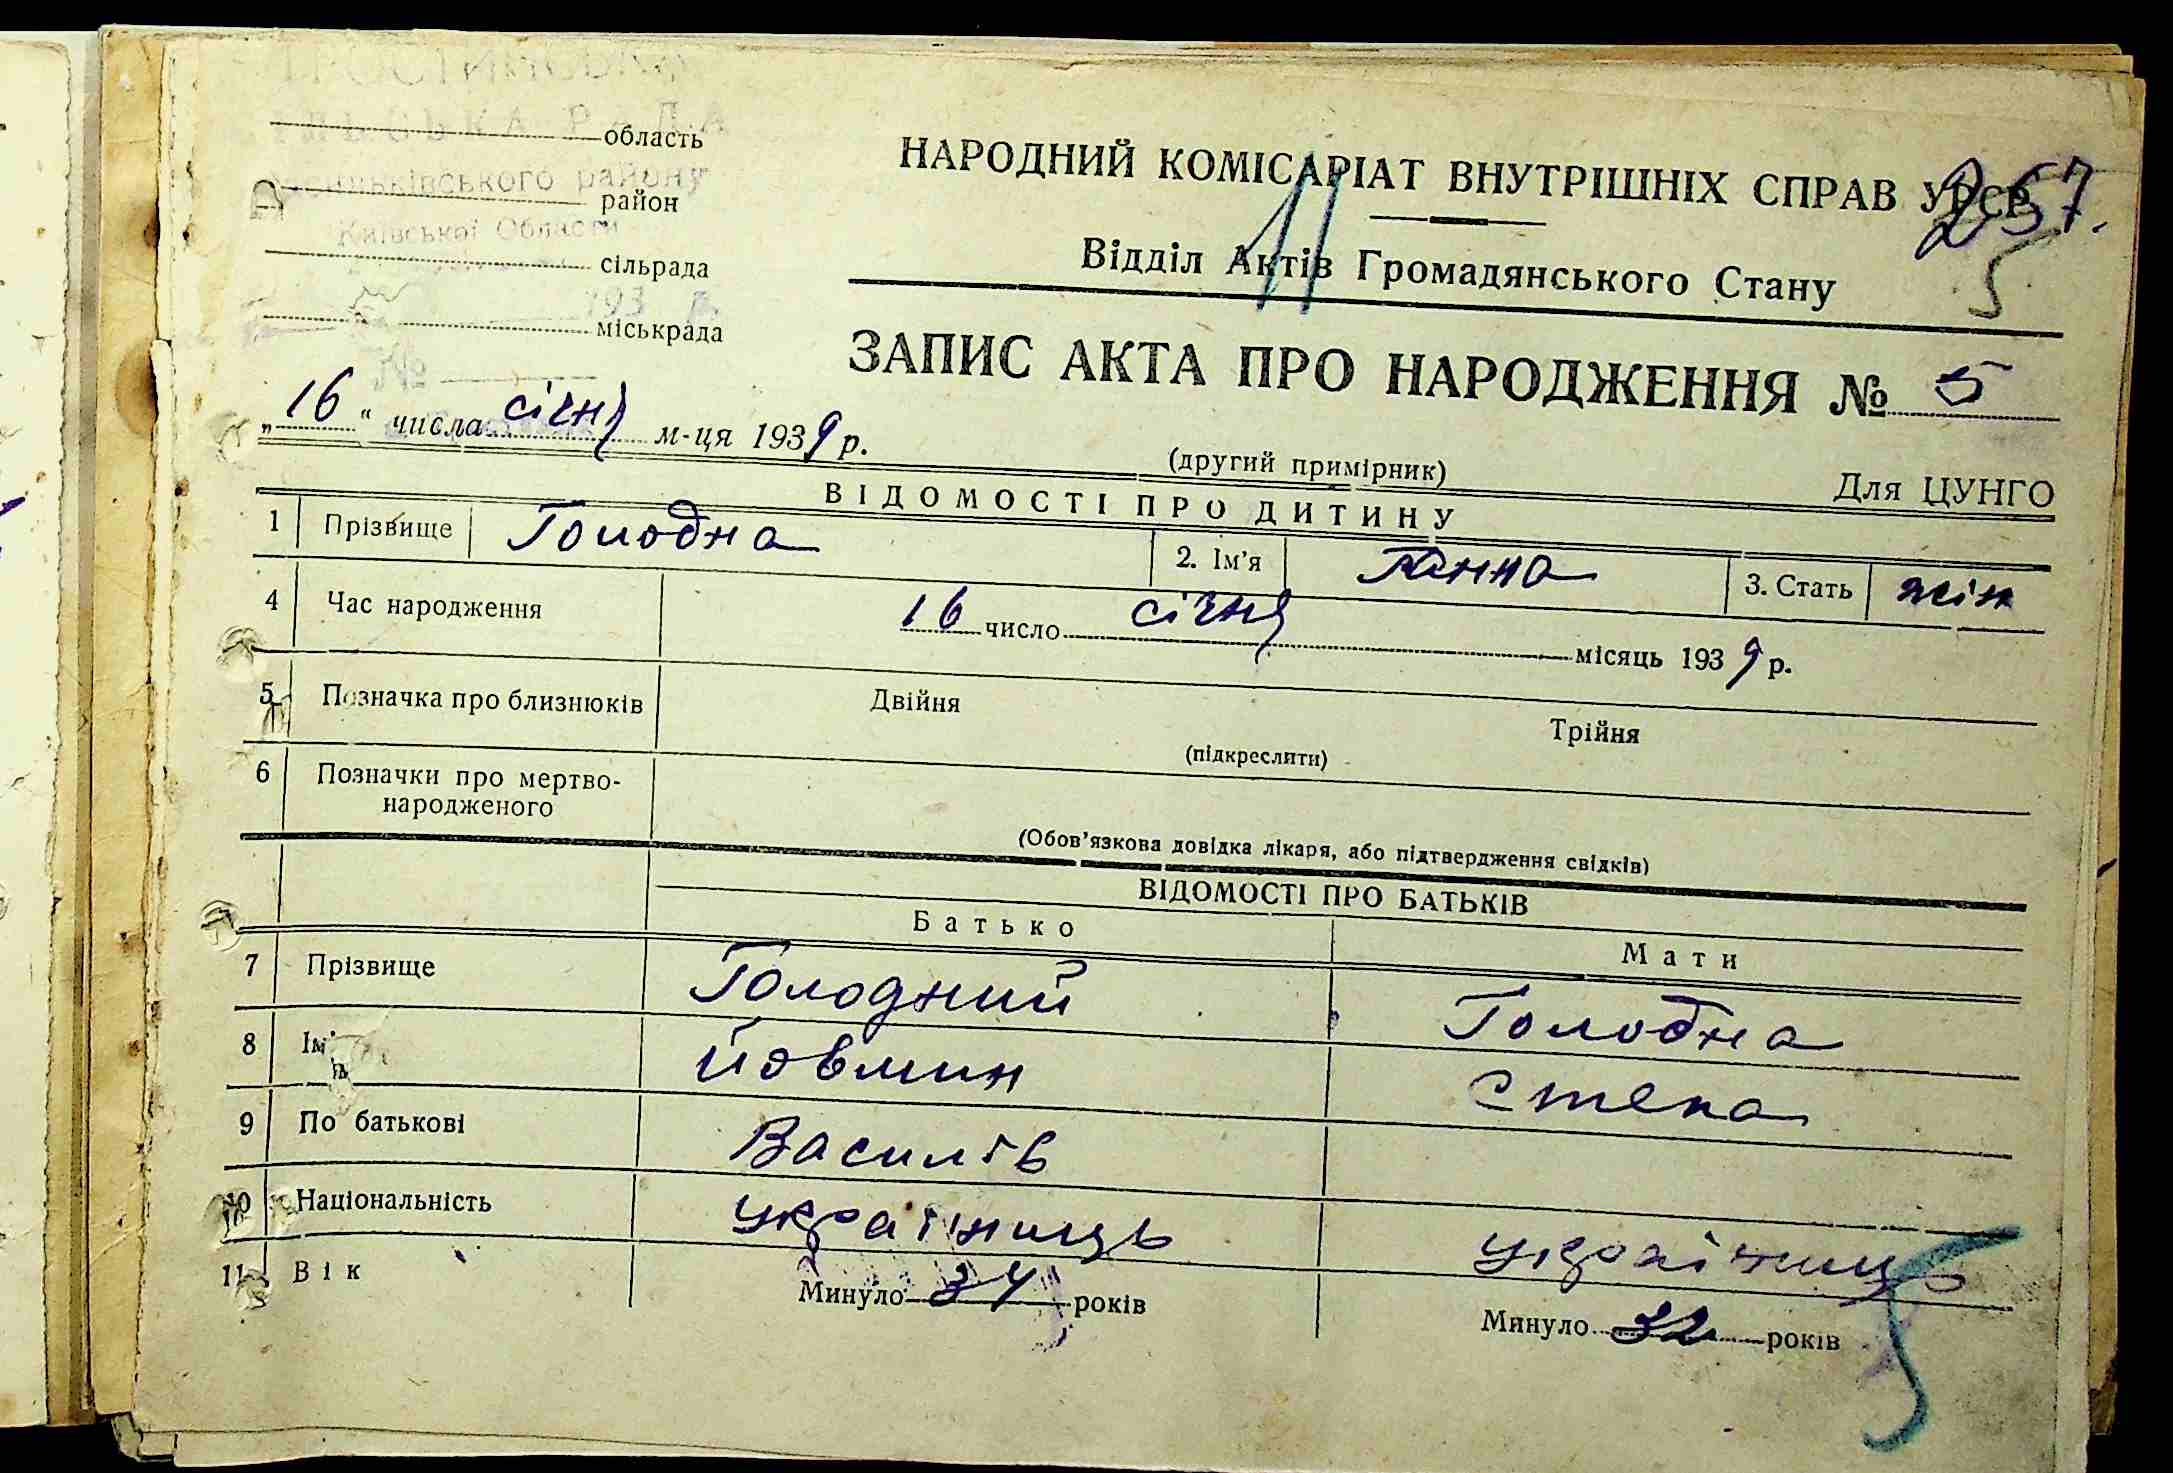 область
район
Київської Области
сільрада
міськрада
193
№
НАРОДНИЙ КОМІСАРІАТ ВНУТРІШНІХ СПРАВ УРСР
257.
5
11
Відділ Актів Громадянського Стану
ЗАПИС АКТА ПРО НАРОДЖЕННЯ № 5
„16“ числа січня м-ця 1939 р.
(другий примірник)
Для ЦУНГО
ВІДОМОСТІ ПРО ДИТИНУ
1 Прізвище Голодна 2. Ім'я Ганна 3. Стать жін
4 Час народження 16 число січня місяць 1939 р.
5 Позначка про близнюків Двійня Трійня
(підкреслити)
6 Позначки про мертво-
народженого
(Обов'язкова довідка лікаря, або підтвердження свідків)
ВІДОМОСТІ ПРО БАТЬКІВ
Батько Мати
7 Прізвище Голодний Голодна
8 Ім'я Йовмин Степа
9 По батькові Василів
10 Національність україниць україниць
11 Вік Минуло 34 років Минуло 32 років
5